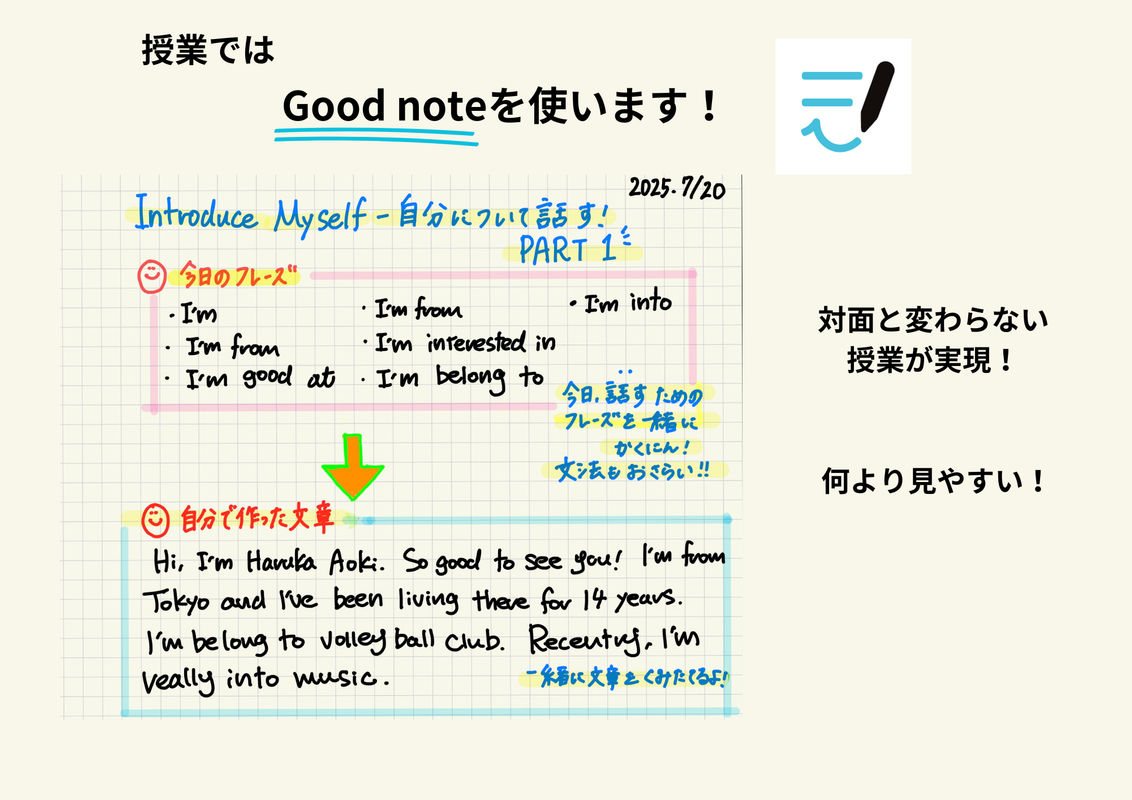 授業では
Good noteを使います！
2025.7/20
Introduce Myself - 自分について話す!
PART 1
今日のフレーズ
・I'm
・I'm from
・I'm into
・I'm from
・I'm interested in
・I'm good at
・I'm belong to
今日、話すための
フレーズを一緒に
かくにん!
文法もおさらい!!
対面と変わらない
授業が実現！
何より見やすい！
自分で作った文章
Hi, I'm Haruka Aoki. So good to see you! I'm from
Tokyo and I've been living there for 14 years.
I'm belong to volley ball club. Recentry, I'm
really into music.
一緒に文章をくみたてるよ!